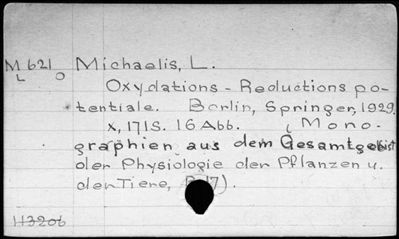 M 621 Michaelis, L.
L o
Oxydations - Reductions po-
tentiale. Berlin, Springer, 1929.
X, 171S. 16 Abb. (Mono-
graphien aus dem Gesamtgebiet
der Physiologie der Pflanzen u.
der Tiere, 17).
113206